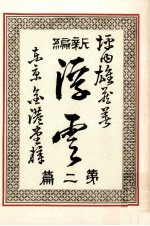 新編
坪内雄蔵著
浮雲
第二篇
東京 金港堂梓